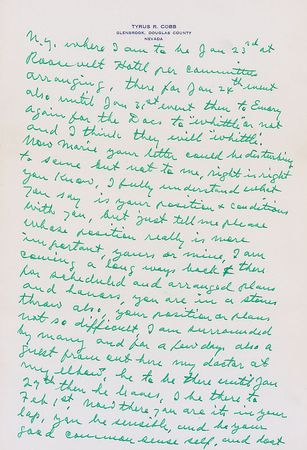 TYRUS R. COBB
GLENBROOK, DOUGLAS COUNTY
NEVADA
N.Y. where I am to be Jan 23rd at
Roosevelt Hotel per committee
arranging, there for Jan 24th event
also until Jan 31st event then to Emory
again for the Docs to "whittle" or not
and I think they will "whittle".
Now Marie your letter could be disturbing
to some but not to me, right is right
you know, I fully understand what
you say is your position & conditions
with you, but just tell me please
whose position really is more
important, yours or mine, I am
coming a long ways back & there
for scheduled and arranged plans
and honors, you are in a stones
throw also, your position or plans
not so difficult, I am surrounded
by many and for a few days also a
guest from out here my doctor at
my elbow, he to be there until Jan
29th then he leaves, I be there to
Feb 1st, Now there you are it in your
lap, you be sensible, and be your
good common sense self, and dont